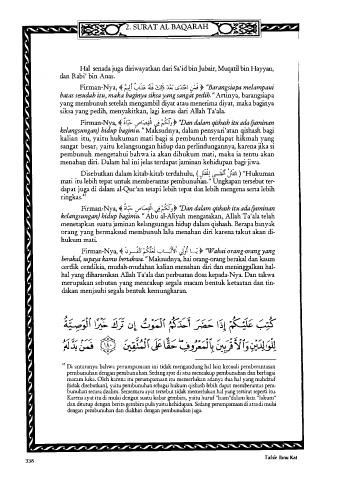 2. SURAT AL BAQARAH
Hal senada juga diriwayatkan dari Sa'id bin Jubair, Muqatil bin Hayyan,
dan Rabi' bin Anas.
Firman-Nya, ﴿ فَمَنِ اعْتَدَى بَعْدَ ذَلِكَ فَلَهُ عَذَابٌ أَلِيمٌ ﴾ "Barangsiapa melampaui
batas sesudah itu, maka baginya siksa yang sangat pedih." Artinya, barangsiapa
yang membunuh setelah mengambil diyat atau menerima diyat, maka baginya
siksa yang pedih, menyakitkan, lagi keras dari Allah Ta'ala.
Firman-Nya, ﴿ وَلَكُمْ فِي الْقِصَاصِ حَيَاةٌ ﴾ "Dan dalam qishash itu ada jaminan
kelangsungan) hidup bagimu." Maksudnya, dalam pensyari'atan qishash bagi
kalian itu, yaitu hukuman mati bagi si pembunuh terdapat hikmah yang
sangat besar, yaitu kelangsungan hidup dan perlindungannya, karena jika si
pembunuh mengetahui bahwa ia akan dihukum mati, maka ia tentu akan
menahan diri. Dalam hal ini jelas terdapat jaminan kehidupan bagi jiwa.
Disebutkan dalam kitab-kitab terdahulu, ( الْقَتْلُ أَنْفَى لِلْقَتْلِ ) "Hukuman
mati itu lebih tepat untuk memberantas pembunuhan." Ungkapan tersebut ter-
dapat juga di dalam al-Qur'an tetapi lebih tepat dan lebih mengena serta lebih
ringkas.
Firman-Nya, ﴿ وَلَكُمْ فِي الْقِصَاصِ حَيَاةٌ ﴾ "Dan dalam qishash itu ada (jaminan
kelangsungan) hidup bagimu." Abu al-Aliyah mengatakan, Allah Ta'ala telah
menetapkan suatu jaminan kelangsungan hidup dalam qishash. Berapa banyak
orang yang bermaksud membunuh lalu menahan diri karena takut akan di-
hukum mati.
Firman-Nya, ﴿ يَا أُولِي الْأَلْبَابِ لَعَلَّكُمْ تَتَّقُونَ ﴾ "Wahai orang-orang yang
berakal, supaya kamu bertakwa." Maksudnya, hai orang-orang berakal dan kaum
cerdik cendikia, mudah-mudahan kalian menahan diri dan meninggalkan hal-
hal yang diharamkan Allah Ta'ala dan perbuatan dosa kepada-Nya. Dan takwa
merupakan sebutan yang mencakup segala macam bentuk ketaatan dan tin-
dakan menjauhi segala bentuk kemungkaran.
كُتِبَ عَلَيْكُمْ إِذَا حَضَرَ أَحَدَكُمُ الْمَوْتُ إِن تَرَكَ خَيْرًا الْوَصِيَّةُ
لِلْوَالِدَيْنِ وَالْأَقْرَبِينَ بِالْمَعْرُوفِ حَقًّا عَلَى الْمُتَّقِينَ ﴿١٨٠﴾ فَمَن بَدَّلَهُ
Di antaranya bahwa perumpamaan ini tidak mengandung hal lain kecuali pemberantasan
pembunuhan dengan pembunuhan. Sedang ayat di atas mencakup pembunuhan dan berbagai
macam luka. Oleh karena itu perumpamaan itu memerlukan adanya dua hal yang mahdzuf
(tidak disebutkan), yaitu pembunuhan sebagai hukum qishash lebih dapat memberantas pem-
bunuhan secara dzalim. Sementara ayat tersebut tidak memerlukan hal yang tersirat seperti itu.
Karena ayat itu di mulai dengan suatu kabar gembira, yaitu huruf "lam" dalam kata "lakum"
dan ditutup dengan berita gembira pula yaitu kehidupan. Sedang perumpamaan di atas di mulai
dengan pembunuhan dan diakhiri dengan pembunuhan juga.
338
Tafsir Ibnu Kat